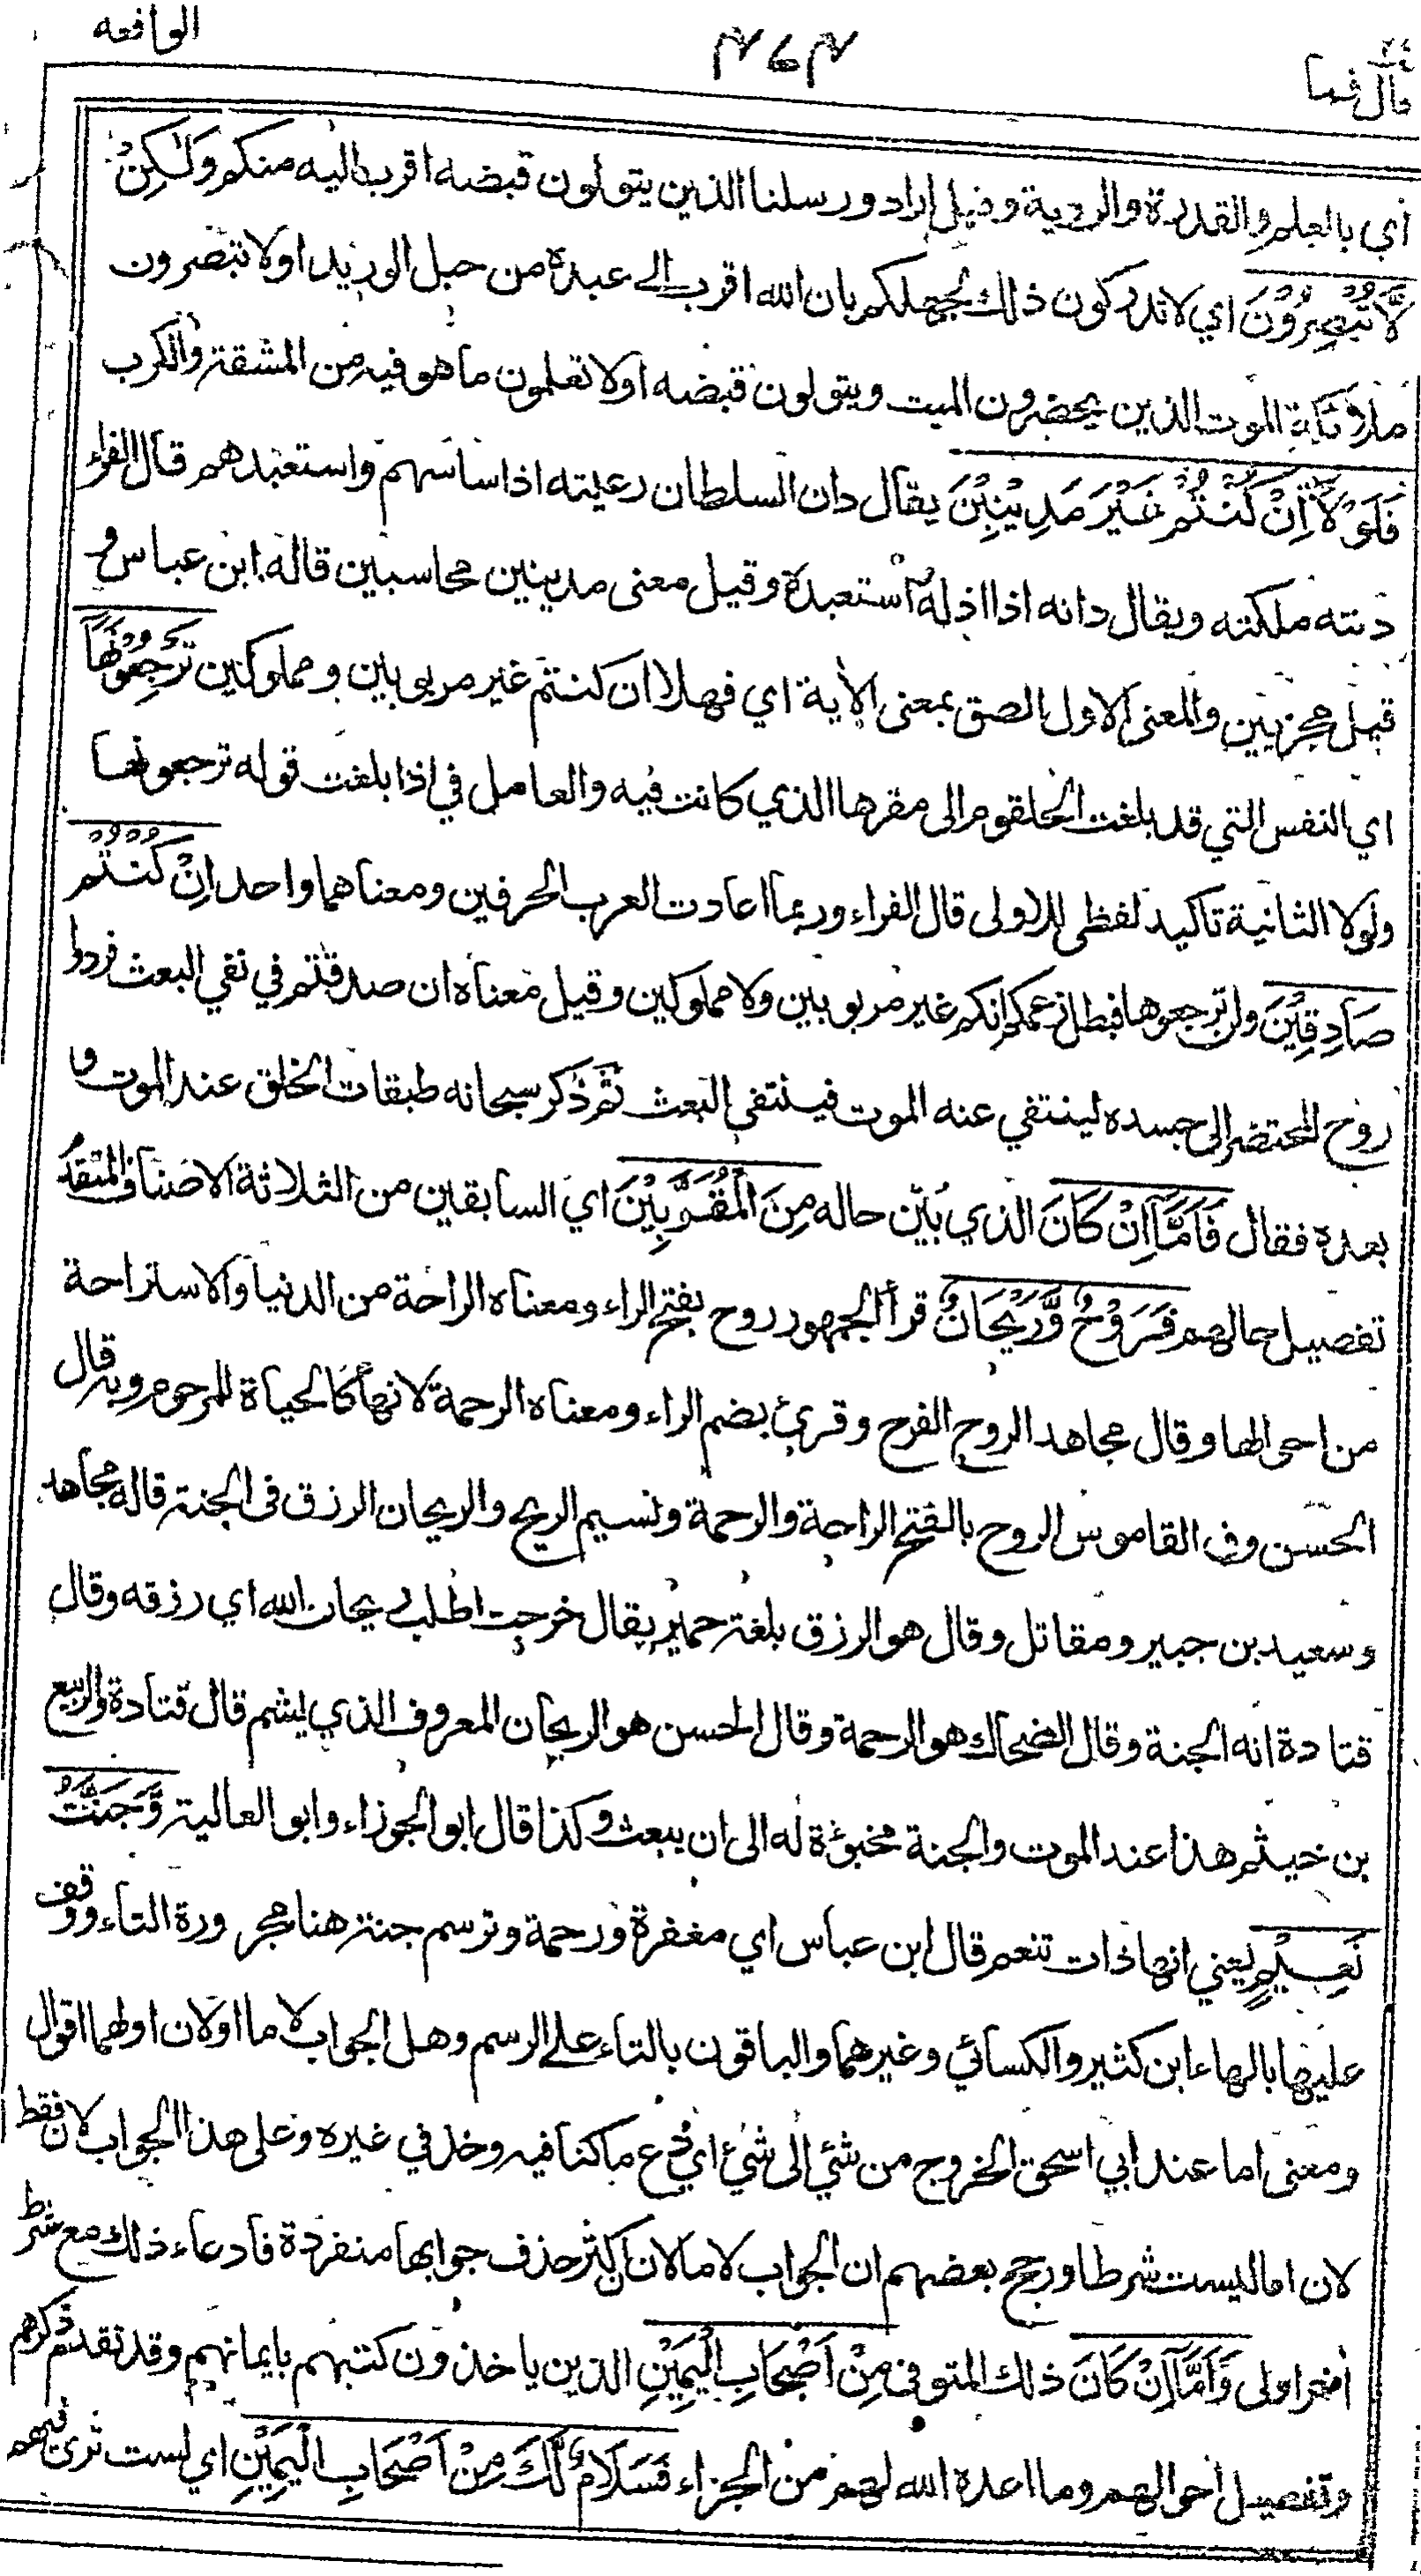 قال فما
٤٦٤
الواقعه
أي بالعلم والقدرة والرؤية وقيل اراد ورسلنا الذين يتولون قبضه اقرب اليه منكم وَلٰكِنْ
لَّا تُبْصِرُوْنَ اي لا تدركون ذلك لجهلكم بان الله اقرب الى عبده من حبل الوريد او لا تبصرون
ملائكة الموت الذين يحضرون الميت ويتولون قبضه او لا تعلمون ما هو فيه من المشقة والكرب
فَلَوْلَآ اِنْ كُنْتُمْ غَيْرَ مَدِيْنِيْنَ يقال دان السلطان رعيته اذا ساسهم واستعبدهم قال الفراء
دنته ملكته ويقال دانه اذا اذله واستعبده وقيل معنى مدينين محاسبين قاله ابن عباس و
قيل مجزيين والمعنى الاول الصق بمعنى الأية اي فهلا ان كنتم غير مربوبين ومملوكين تَرْجِعُوْنَهَا
اي النفس التي قد بلغت الحلقوم الى مقرها الذي كانت فيه والعامل في اذا بلغت قوله ترجعونها
ولولا الثانية تاكيد لفظي للاولى قال الفراء وربما اعادت العرب الحرفين ومعناهما واحد اِنْ كُنْتُمْ
صَادِقِيْنَ ولن ترجعوها فبطل زعمكم انكم غير مربوبين ولا مملوكين وقيل معناه ان صدقتم في نفي البعث فردوا
روح المحتضر الى جسده لينتفي عنه الموت فينتفي البعث ثم ذكر سبحانه طبقات الخلق عند الموت و
بعده فقال فَاَمَّآ اِنْ كَانَ الذي بُيّن حاله مِنَ الْمُقَرَّبِيْنَ اي السابقين من الثلاثة الاصناف المتقدم
تفصيل حالهم فَرَوْحٌ وَّرَيْحَانٌ قرأ الجمهور روح بفتح الراء ومعناه الراحة من الدنيا والاستراحة
من احوالها وقال مجاهد الروح الفرح وقرئ بضم الراء ومعناه الرحمة لانها كالحياة للمرحوم وبه قال
الحسن وفي القاموس الروح بالفتح الراحة والرحمة ونسيم الريح والريحان الرزق فى الجنة قاله مجاهد
وسعيد بن جبير ومقاتل وقال هو الرزق بلغة حمير يقال خرجت اطلب ريحان الله اي رزقه وقال
قتادة انه الجنة وقال الضحاك هو الرحمة وقال الحسن هو الريحان المعروف الذي يشم قال قتادة والربيع
بن خيثم هذا عند الموت والجنة مخبوءة له الى ان يبعث وكذا قال ابو الجوزاء وابو العالية وَّجَنَّتُ
نَعِيْمٍ يعني انها ذات تنعم قال ابن عباس اي مغفرة ورحمة وترسم جنة هنا مجرورة التاء ووقف
عليها بالهاء ابن كثير والكسائي وغيرهما والباقون بالتاء على الرسم وهل الجواب لاما اولان اولهما اقوال
ومعنى اما عند ابي اسحق الخروج من شئ الى شئ اي دع ما كنا فيه وخذ في غيره وعلى هذا الجواب لان فقط
لان اما ليست شرطا ورجح بعضهم ان الجواب لاما لان ان كثر حذف جوابها منفردة فادعاء ذلك مع شرط
أخر اولى وَاَمَّآ اِنْ كَانَ ذلك المتوفى مِنْ اَصْحَابِ الْيَمِيْنِ الذين ياخذون كتبهم بايمانهم وقد تقدم ذكرهم
وتفصيل احوالهم وما اعده الله لهم من الجزاء فَسَلَامٌ لَّكَ مِنْ اَصْحَابِ الْيَمِيْنِ اي لست ترى فيهم